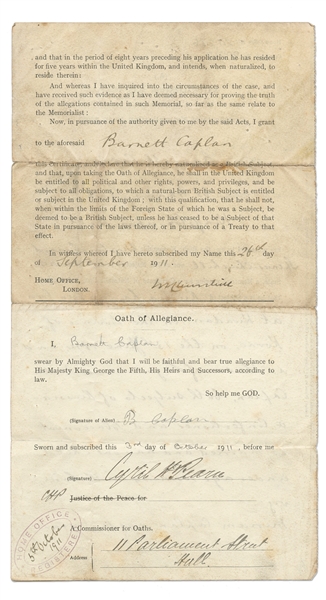 and that in the period of eight years preceding his application he has resided
for five years within the United Kingdom, and intends, when naturalized, to
reside therein:
And whereas I have inquired into the circumstances of the case, and
have received such evidence as I have deemed necessary for proving the truth
of the allegations contained in such Memorial, so far as the same relate to
the Memorialist:
Now, in pursuance of the authority given to me by the said Acts, I grant
to the aforesaid Barnett Caplan
this Certificate, and declare that he is hereby naturalized as a British Subject
and that, upon taking the Oath of Allegiance, he shall in the United Kingdom
be entitled to all political and other rights, powers, and privileges, and be
subject to all obligations, to which a natural-born British Subject is entitled
or subject in the United Kingdom; with this qualification, that he shall not,
when within the limits of the Foreign State of which he was a Subject, be
deemed to be a British Subject, unless he has ceased to be a Subject of that
State in pursuance of the laws thereof, or in pursuance of a Treaty to that
effect.
In witness whereof I have hereto subscribed my Name this 26th day
of September 1911.
HOME OFFICE,
LONDON.
Oath of Allegiance.
I, Barnett Caplan
swear by Almighty God that I will be faithful and bear true allegiance to
His Majesty King George the Fifth, His Heirs and Successors, according to
law.
So help me GOD.
(Signature of Alien) B Caplan
Sworn and subscribed this 3rd day of October 1911, before me
(Signature) Cyril
Justice of the Peace for
A Commissioner for Oaths.
Address 11 Parliament Street
Hull
HOME OFFICE
October
1911
REGISTERED